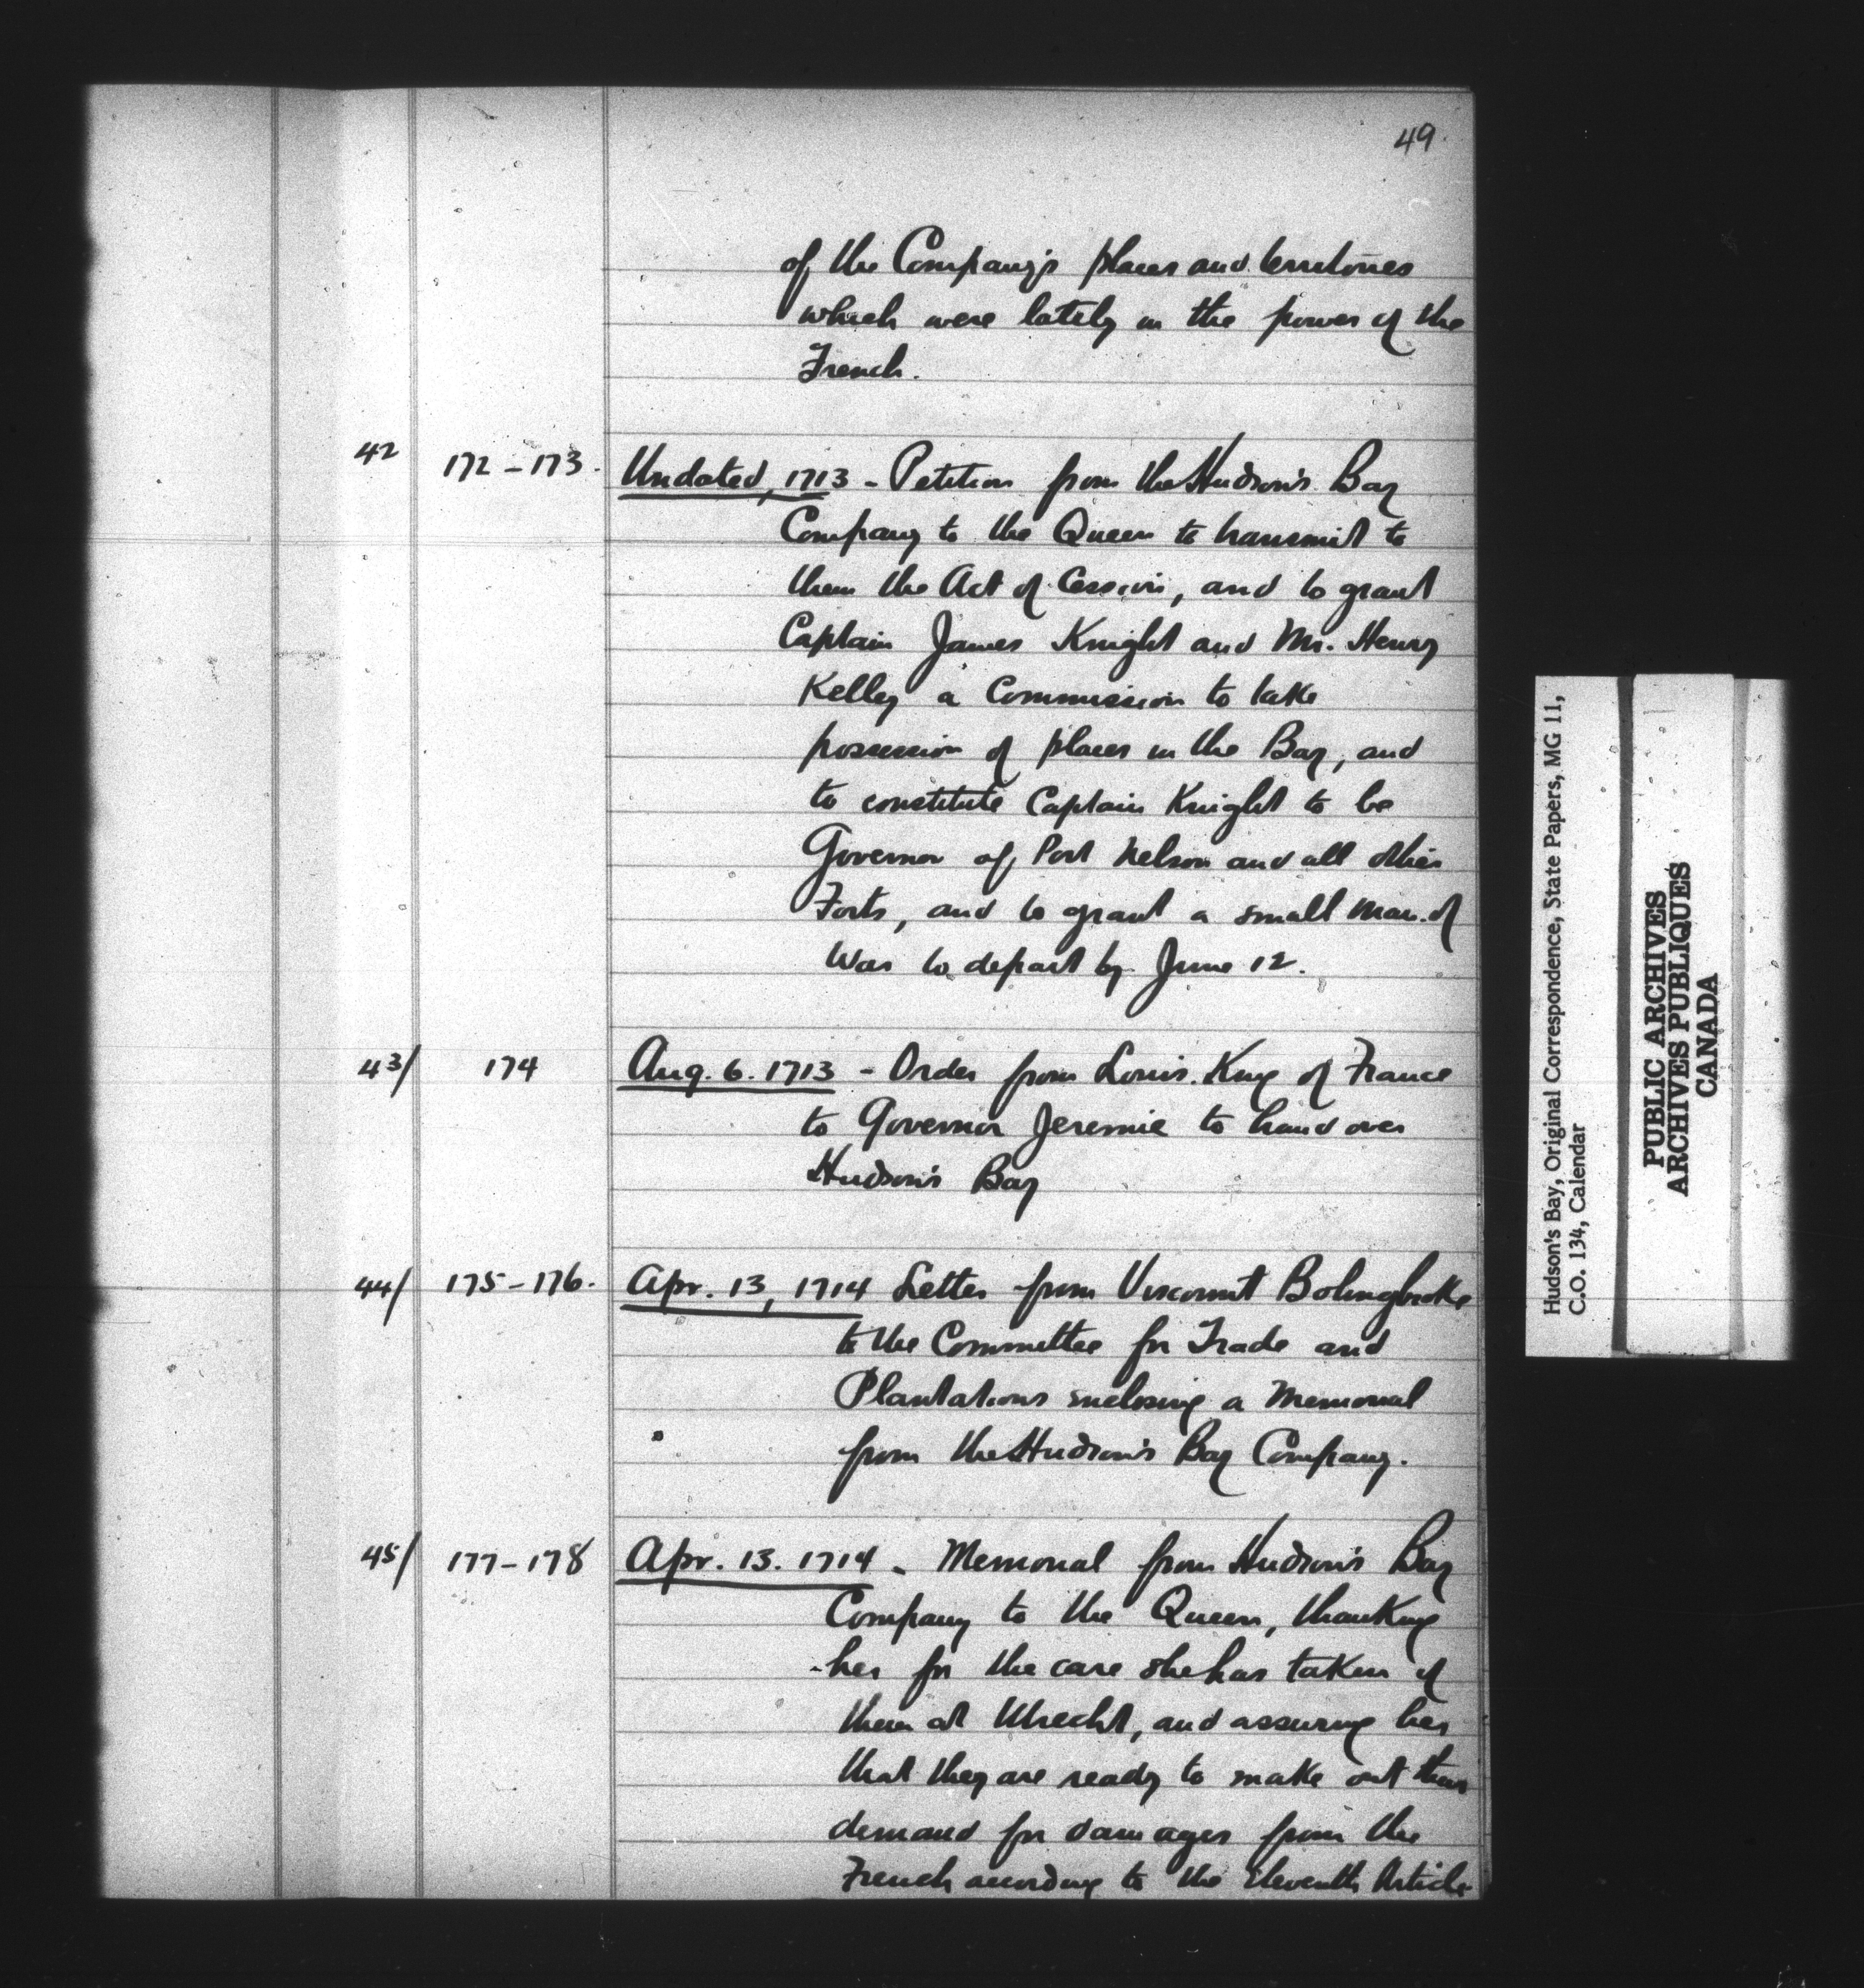 49.
of the Company's places and territories
which were lately in the power of the
French.
42 172-173. Undated, 1713 - Petition from the Hudson's Bay
Company to the Queen to transmit to
them the Act of Cession, and to grant
Captain James Knight and Mr. Henry
Kelley a Commission to take
possession of places in the Bay, and
to constitute Captain Knight to be
Governor of Port Nelson and all other
Forts, and to grant a small Man. of
War to depart by June 12.
43/ 174 Aug. 6. 1713 - Order from Louis. King of France
to Governor Jeremie to hand over
Hudson's Bay
44/ 175-176. Apr. 13, 1714 Letter from Viscount Bolingbroke
to the Committee for Trade and
Plantations enclosing a Memorial
from the Hudson's Bay Company.
45/ 177-178 Apr. 13. 1714 - Memorial from Hudson's Bay
Company to the Queen, thanking
her for the care she has taken of
them at Utrecht, and assuring her
that they are ready to make out their
demand for damages from the
French according to the Eleventh Article
Hudson's Bay, Original Correspondence, State Papers, MG 11,
C.O. 134, Calendar
PUBLIC ARCHIVES
ARCHIVES PUBLIQUES
CANADA